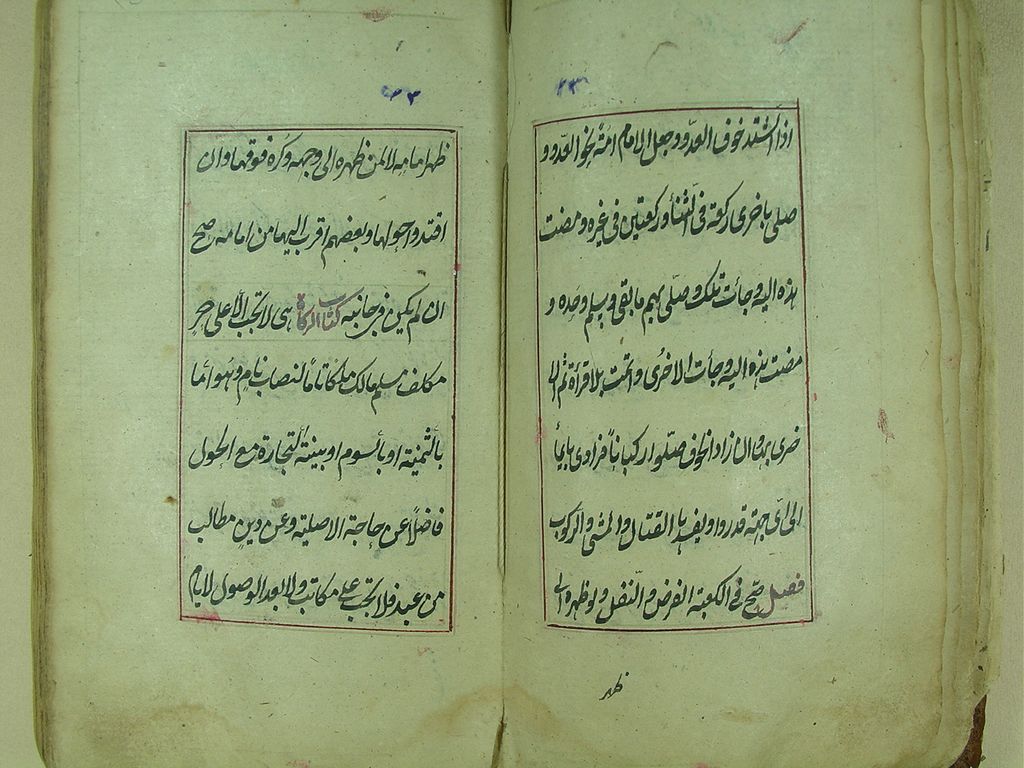 ٢٣
اذا اشتد خوف العدو وجعل الامام امة نحو العدو و
صلى باخرى ركعة فى الثنأ وركعتين فى غيره ومضت
هذه اليه وجأت تلك وصلى بهم ما بقى ويسلم وحده و
مضت هذه اليه وجأت الاخرى واتمت بلا قرأة ثم الا
خرى بها وان زاد الخوف صلوا ركبانا فرادى بايمأ
الى اى جهة قدروا ويفسدها القتال والمشى والركوب
فصل صح فى الكعبة الفرض والنفل ولو ظهره الى
ظهر
٢٣
ظهر امامه لا لمن ظهره الى وجهه وكره فوقها وان
اقتدوا حولها وبعضهم اقرب اليها من امامه صح
ان لم يكن فى جانبه كتاب الزكاة هى لا تجب الا على حر
مكلف مسلم مالك ملكا تاما لنصاب نام وهو اما
بالثمنية او بالسوم او بنية التجارة مع الحول
فاضلا عن حاجة الاصلية وعن دين مطالب
من عبد فلا تجب على مكاتب ولا بعد الوصول لايام